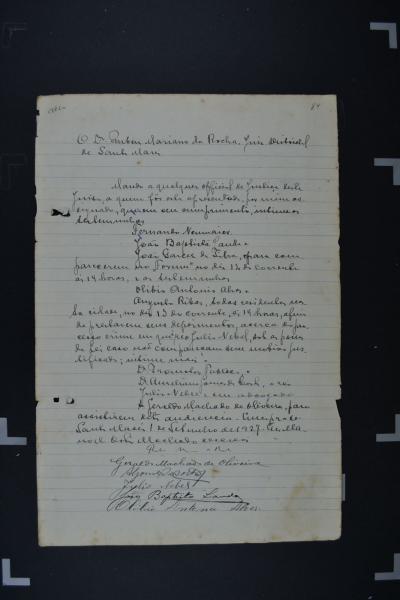 84
O Dr. Ruben Mariano da Rocha, Juiz Districtal
de Santa Maria
Mando a qualquer official de Justiça deste
Juizo, a quem fôr este apresentado, por mim as
signado, que em seu cumprimento, intime as
testemunhas
Fernando Neumaier
João Baptista
João Garcez da Silva, afim com
parecerem no "Forum" no dia 12 do corrente
ás 14 horas, e as testemunhas
Olibio Antonio Alves
Augusto Ribas, todos residentes nes
ta cidade, no dia 13 do corrente, ás 14 horas, afim
de prestarem seus depoimentos, acerca do pro
cesso crime em que é réo Julio Nebel, sob as penas
da lei caso não compareçam sem motivo jus
tificado; intime mais
Dr. Promotor Publico
Dr. Aureliano
Julio Nebel e seu advogado
Dr Geraldo Machado de Oliveira, para
assistirem dita audiencia. Cumpra-se
Santa Maria 1 de Setembro de 1927. Eu Ma
noel Machado escrevi
Geraldo Machado de Oliveira
Julio Nebel
João Baptista
Olibio Antonio Alves